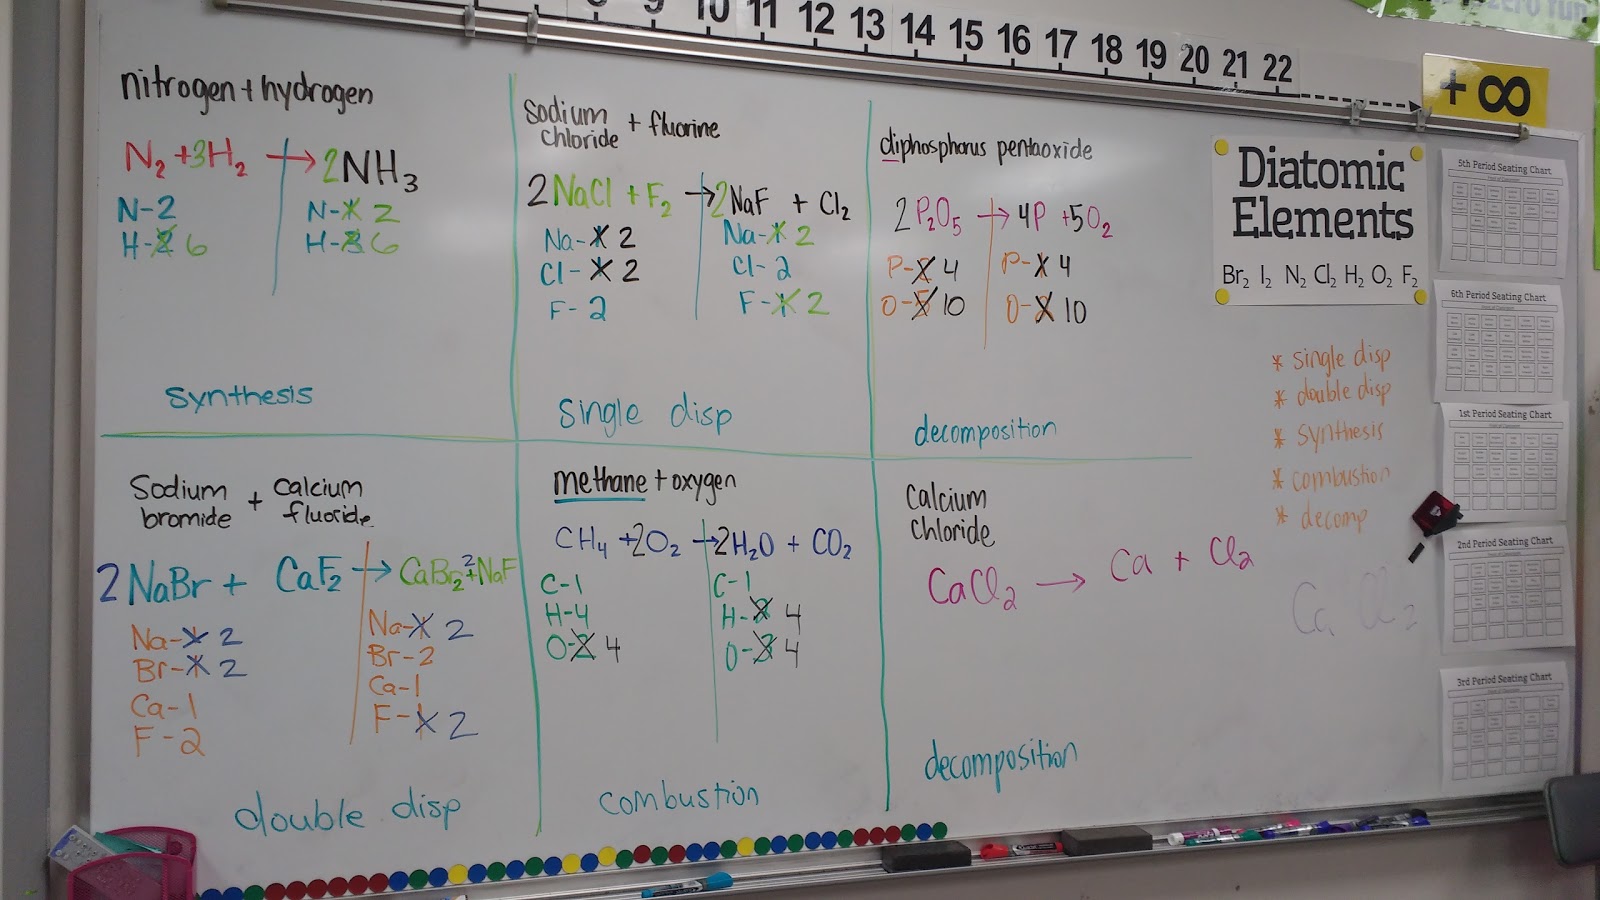 8 9 10 11 12 13 14 15 16 17 18 19 20 21 22
+ ∞
zero fun
nitrogen + hydrogen
N₂ + 3H₂ → 2NH₃
N-2 N-1 2
H-2 6 H-3 6
synthesis
sodium chloride + fluorine
2NaCl + F₂ → 2NaF + Cl₂
Na-1 2 Na-1 2
Cl-1 2 Cl-2
F-2 F-1 2
single disp
diphosphorus pentaoxide
2P₂O₅ → 4P + 5O₂
P-2 4 P-1 4
O-5 10 O-2 10
decomposition
Sodium bromide + calcium fluoride
2NaBr + CaF₂ → CaBr₂ + 2NaF
Na-1 2 Na-1 2
Br-1 2 Br-2
Ca-1 Ca-1
F-2 F-1 2
double disp
methane + oxygen
CH₄ + 2O₂ → 2H₂O + CO₂
C-1 C-1
H-4 H-2 4
O-2 4 O-3 4
combustion
Calcium
chloride
CaCl₂ → Ca + Cl₂
Ca Cl₂
decomposition
Diatomic
Elements
Br₂ I₂ N₂ Cl₂ H₂ O₂ F₂
* single disp
* double disp
* synthesis
* combustion
* decomp
5th Period Seating Chart
6th Period Seating Chart
1st Period Seating Chart
2nd Period Seating Chart
3rd Period Seating Chart